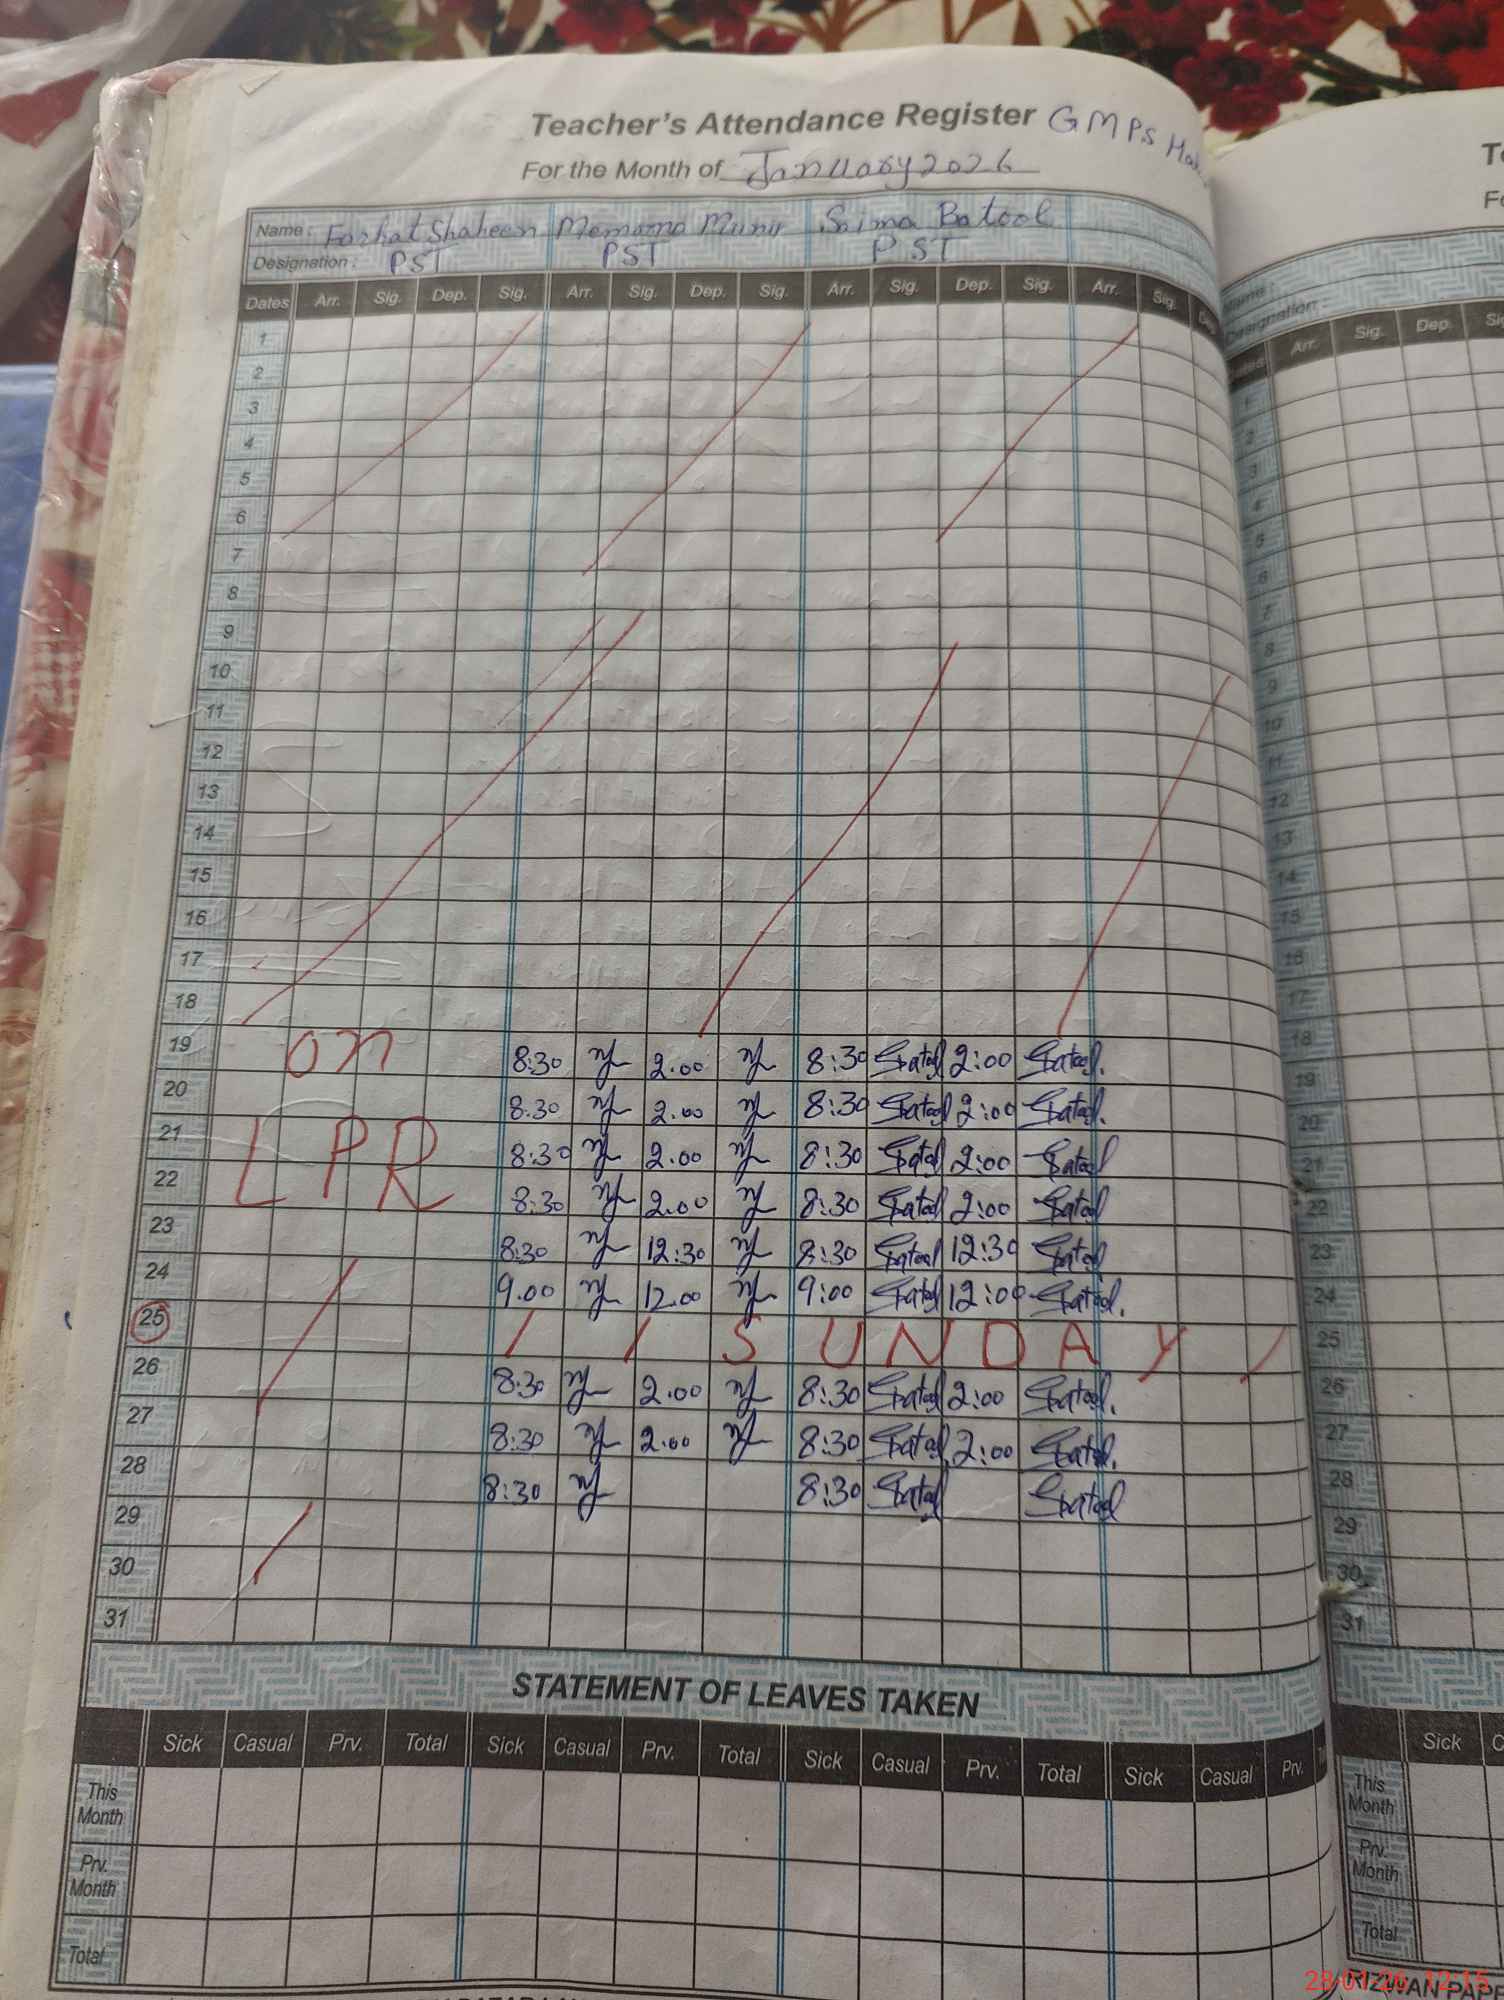 Teacher's Attendance Register GMPS
For the Month of January 2026
Name: Farhat Shaheen Memoona Munir Saima Batool
Designation: PST PST PST
Dates Arr. Sig. Dep. Sig. Arr. Sig. Dep. Sig. Arr. Sig. Dep. Sig. Arr. Sig.
1
2
3
4
5
6
7
8
9
10
11
12
13
14
15
16
17
18
19 on 8:30 2.00 8:30 Batool 2:00 Batool
20 8.30 2.00 8:30 Batool 2:00 Batool
21 LPR 8:30 2.00 8:30 Batool 2:00 Batool
22 8:30 2.00 8:30 Batool 2:00 Batool
23 8:30 12:30 8:30 Batool 12:30 Batool
24 9.00 12.00 9:00 Batool 12:00 Batool
25 SUNDAY
26 8:30 2.00 8:30 Batool 2:00 Batool
27 8:30 2.00 8:30 Batool 2:00 Batool
28 8:30 8:30 Batool Batool
29
30
31
STATEMENT OF LEAVES TAKEN
Sick Casual Prv. Total Sick Casual Prv. Total Sick Casual Prv. Total Sick Casual Prv.
This Month
Prv. Month
Total
Name:
Designation:
Arr. Sig. Dep.
1
2
3
4
5
6
7
8
9
10
11
12
13
14
15
16
17
18
19
20
21
22
23
24
25
26
27
28
29
30
31
Sick
This Month
Prv. Month
Total
RIZWAN PAPE
28-01-26 12:15